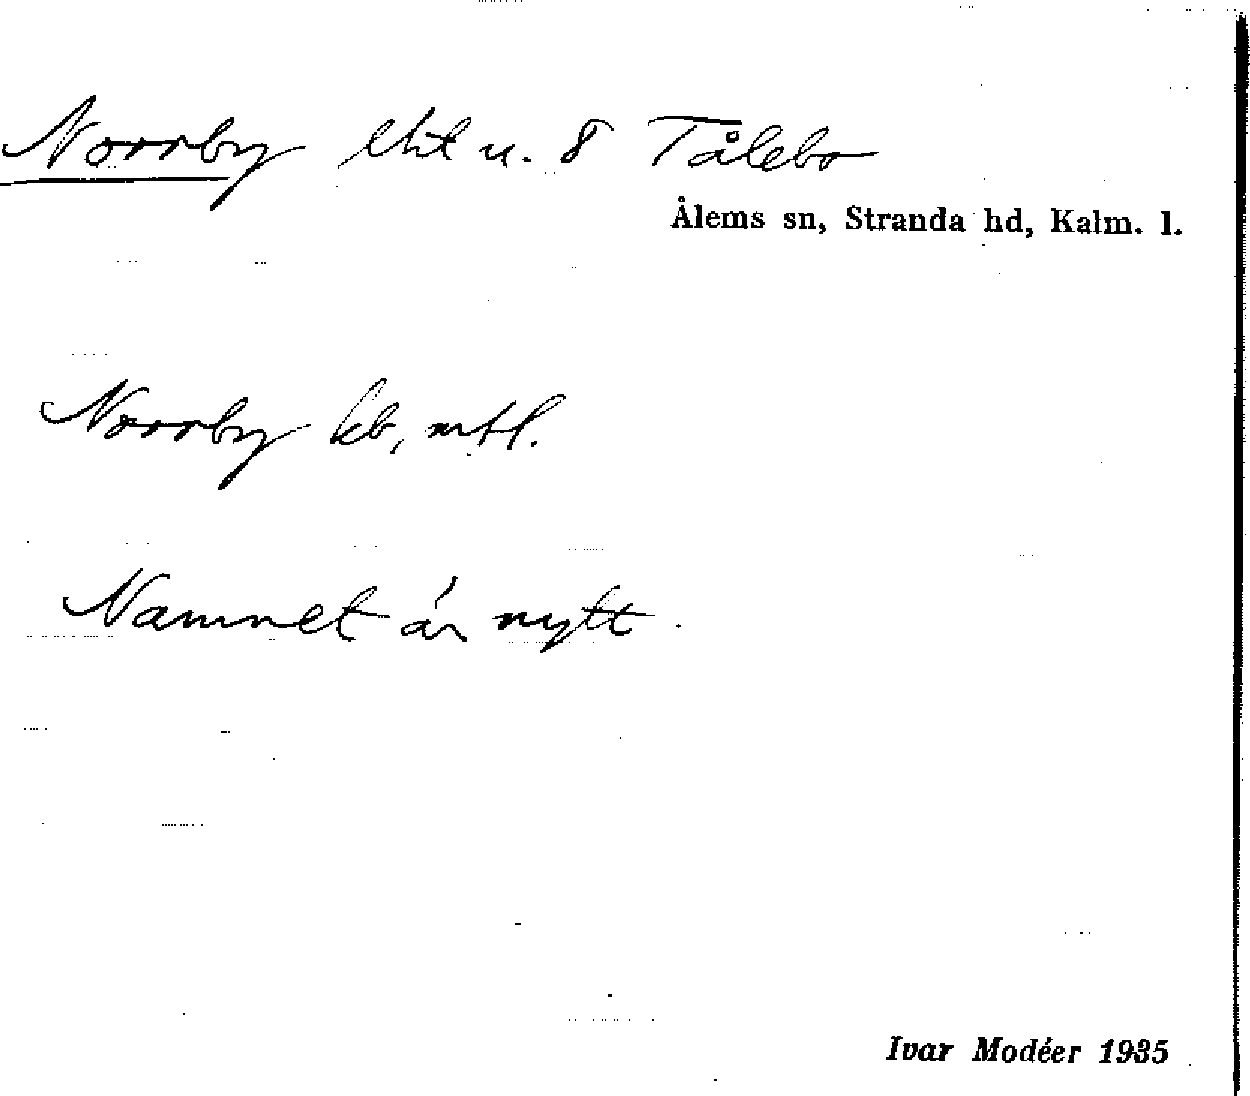 Norrby lht u. 8 Tålebo
Ålems sn, Stranda hd, Kalm. l.
Norrby kb, mtl.
Namnet är nytt.
Ivar Modéer 1935